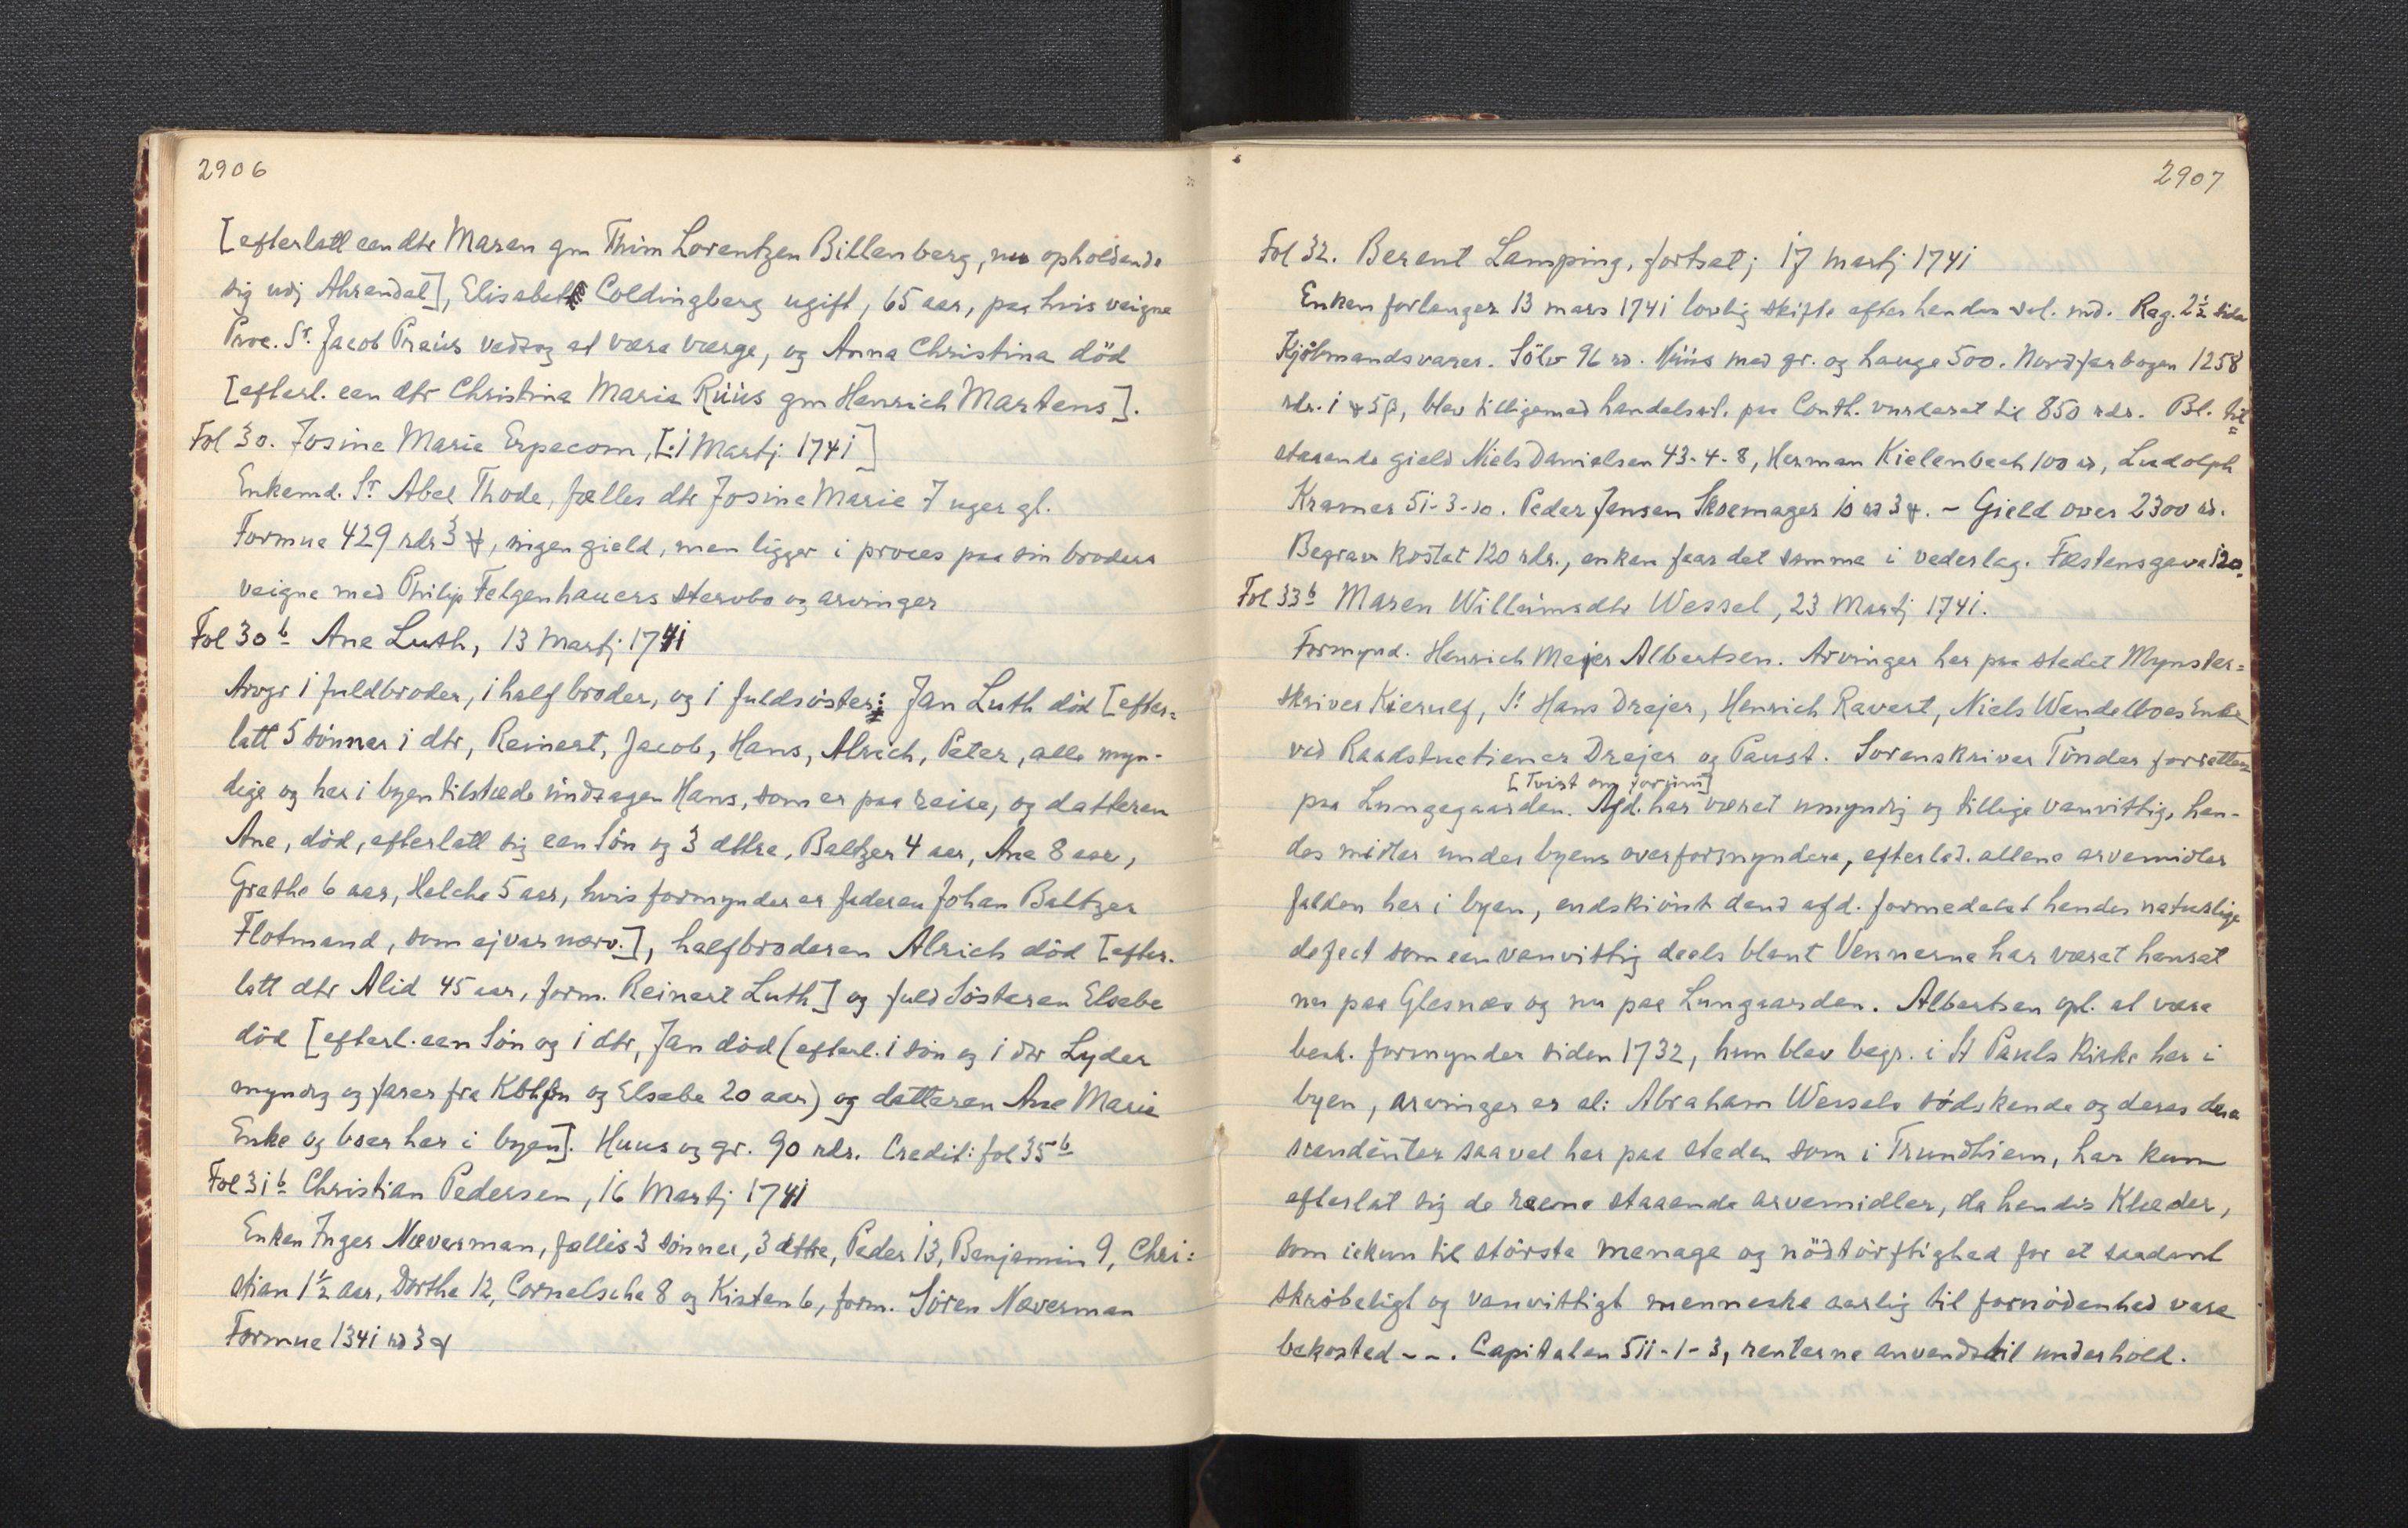 2906
[efterlatt een dtr Maren gm Thim Lorentzen Billenberg, nu opholdende
sig udj Ahrendal], Elisabet Coldingberg ugift, 65 aar, paa hvis veigne
Proc. Sr. Jacob Præus vedtog at være værge, og Anna Christina död
[efterl. een dtr Christina Maria Rüüs gm Henrich Martens].
Fol 30. Josine Marie Erpecom, [:1 Martj: 1741]
Enkemd. Sr Abel Thode, fælles dtr Josine Marie 7 uger gl.
Formue 429 rdr 3 ƒ, ingen gield, men ligger i proces paa sin broders
veigne med Philip Felgenhauers stervbo og arvinger
Fol 30 b Ane Luth, 13 Martj: 1741
Arvgr 1 fuldbroder, 1 halfbroder, og 1 fuldsöster: Jan Luth död [efter=
latt 5 sönner 1 dtr, Reinert, Jacob, Hans, Alrich, Peter, alle myn-
dige og her i byen tilstæde undtagen Hans, som er paa reise, og datteren
Ane, död, efterlatt sig een sön og 3 dttre, Baltzer 4 aar, Ane 8 aar,
Grethe 6 aar, Helche 5 aar, hvis formynder er faderen Johan Baltzer
Flotmand, som ej var nærv.], halfbroderen Alrich död [efter.
latt dtr Alid 45 aar, form. Reinert Luth] og fuld Sösteren Elsebe
död [efterl. een sön og 1 dtr, Jan död (efterl. 1 sön og 1 dtr Lyder
myndig og farer fra Kbhfn og Elsebe 20 aar) og datteren Ane Marie
Enke og boer her i byen]. Huus og gr. 90 rdr. Credit: fol 35 b
Fol 31 b Christian Pedersen, 16 Martj 1741
Enken Inger Næverman, fællis 3 sönner, 3 dttre, Peder 13, Benjamin 9, Chri=
stian 1½ aar, Dorthe 12, Cornelsche 8 og Kisten 6, form. Sören Næverman
Formue 1341 rd 3 ƒ
2907
Fol 32. Berent Lamping, fortsat; 17 martj 1741
Enken forlanger 13 mars 1741 lovlig skifte efter hendes sal. md. Reg. 2½ side
Kjöbmandsvarer. Sölv 96 rd. Huus med gr. og hauge 500. Nordfarbogen 1258
rdr. 1 ƒ 5 β, blev tilligemed handelsret. paa Conth. vurderet til 850 rdr. Bl. til
staaende gield Niels Danielsen 43-4-8, Herman Kielenbech 100 rd, Ludolph
Kramer 51-3-10. Peder Jensen Skoemager 10 rd 3 ƒ. - Gield over 2300 rd.
Begrav kostet 120 rdr., enken faar det samme i vederlag. Fæstensgave 120.
Fol 33 b Maren Willumsdtr Wessel, 23 Martj 1741.
Formynd. Henrich Mejer Albertsen. Arvinger her paa stedet Mynster=
skriver Kierulf, Sr Hans Drejer, Henrich Ravert, Niels Wendelboes Enke
ved Raadstuetiener Drejer og Paust. Sorenskriver Tönder forretter
[Tvist om forum]
paa Lungegaarden. Afd. har været umyndig og tillige vanvittig, hen-
des midler under byens overformyndere, efterlad. allene arvemidler
falden her i byen, endskiönt dend afd. formedelst hendes naturlige
defect som een vanvittig deels blant Vennerne har været hensat
nu paa Glesnæs og nu paa Lungaarden. Albertsen opl. at være
besk. formynder siden 1732, hun blev begr. i St Pauls Kirke her i
byen, arvinger er al: Abraham Wessels södskende og deres des
scendenter saavel her paa steden som i Trundhiem, har kun
efterlat sig de reene staaende arvemidler, da hendes Klæder,
som ickun til störste menage og nödtörftighed for et saadant
skröbeligt og vanvittigt menneske aarlig til fornödenhed vare
bekosted - -. Capitalen 511-1-3, renterne anvendt til underhold.